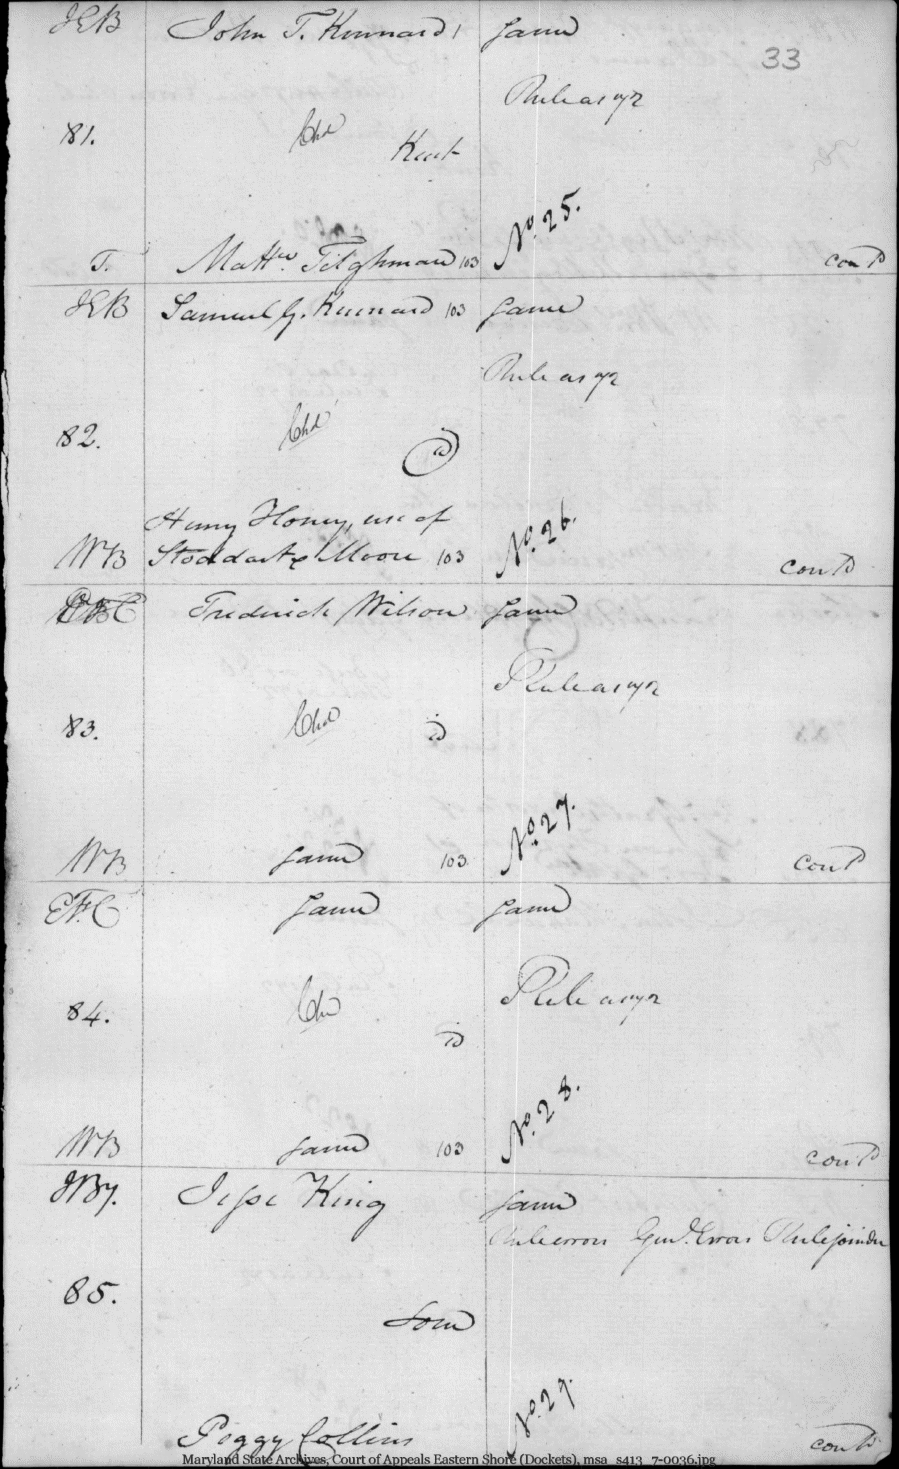 JEB John T. Kennard 1 Same
33
Rule as yr
81. Chd
Kent
No. 25.
T. Matthw. Tilghman 103 contd
JEB Samuel G. Kennard 103 Same
Rule as yr
82. Chd
id
Henry Honey, use of
WB Stoddart & Moore 103 No. 26. contd
Frederick Wilson Same
Rule as yr
83. Chd id
No. 27.
WB Same 103 contd
EFC Same Same
Rule as yr
84. Chd
id
No. 28.
WB Same 103 contd
JBy. Jesse King Same
Rule errors Genl. Errors Rule joinder
85.
Som
No. 29.
Peggy Collins contd
Maryland State Archives, Court of Appeals Eastern Shore (Dockets), msa_s413_7-0036.jpg